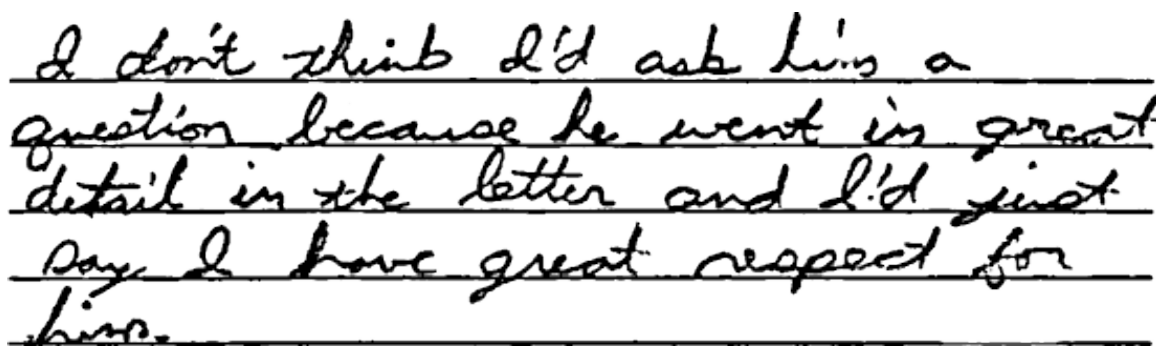 I don't think I'd ask him a
question because he went in great
detail in the letter and I'd just
say I have great respect for
him.